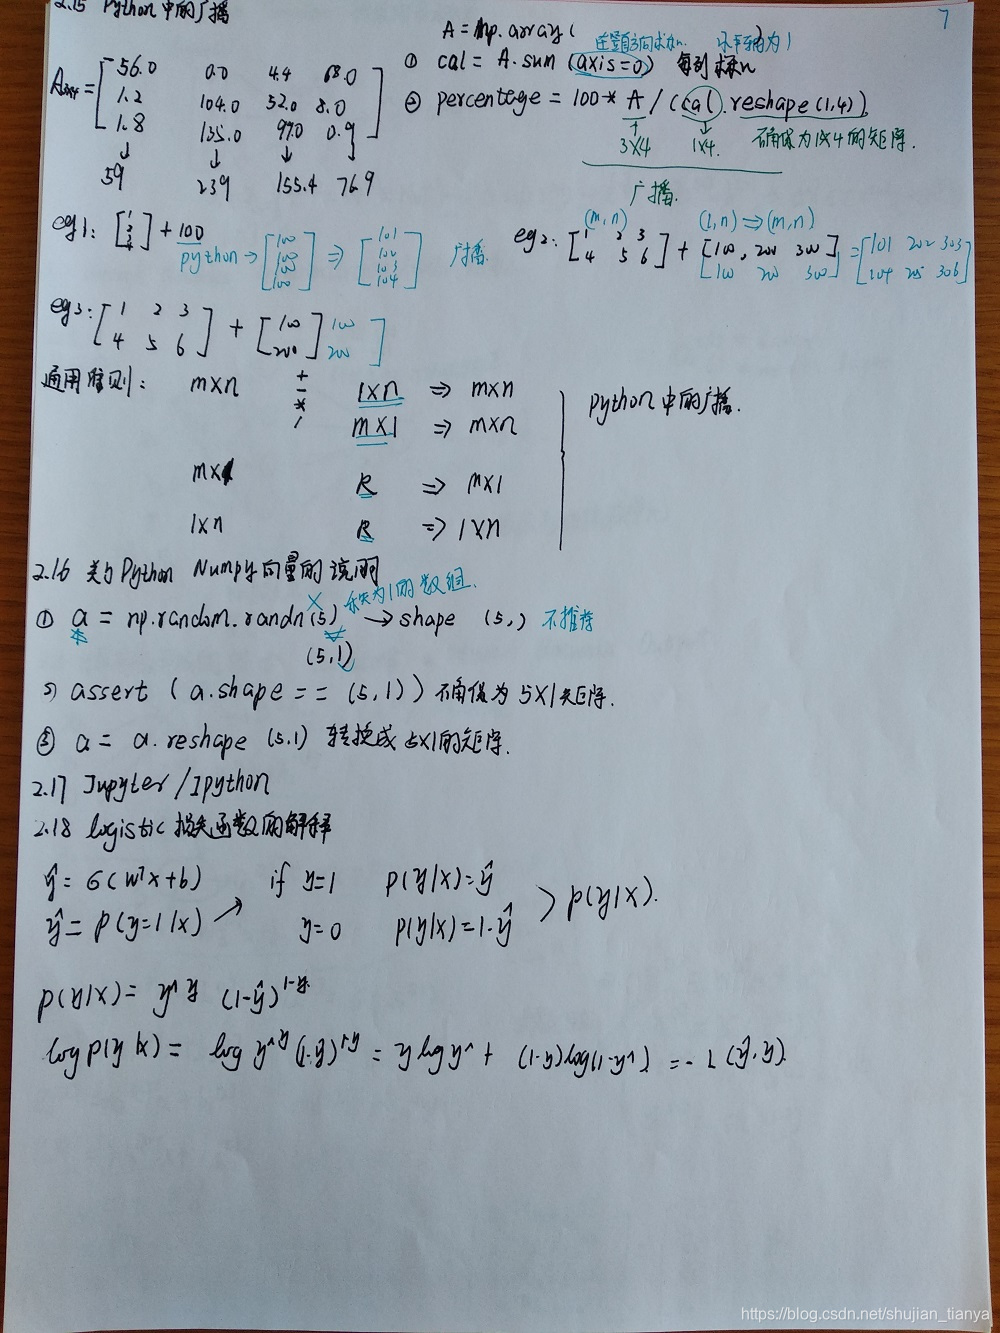 2.15 Python中的广播
7
A = np.array(
垂直方向求和. 水平轴为1
A3x4 = [56.0 0.0 4.4 68.0
1.2 104.0 52.0 8.0
1.8 135.0 99.0 0.9]
↓ ↓ ↓ ↓
59 239 155.4 76.9
① cal = A.sum (axis=0) 每列求和
② percentage = 100 * A / (cal.reshape(1,4))
3X4 1X4. 确保为1X4的矩阵.
广播.
eg1: [1 2 3 4] + 100
python → [100 100 100 100] ⇒ [101 102 103 104] 广播
(m,n) (1,n) ⇒ (m,n)
eg2: [1 2 3 + [100, 200 300] = [101 202 303
4 5 6] [100 200 300] 104 205 306]
eg3: [1 2 3 + [100] 100
4 5 6] 200 200]
通用准则: mxn + 1xn ⇒ mxn
- * / mx1 ⇒ mxn
python中的广播.
mx1 R ⇒ mx1
1xn R ⇒ 1xn
2.16 关于Python Numpy向量的说明
X 秩为1的数组.
① a = np.random.randn(5) → shape (5,) 不推荐
(5,1)
② assert (a.shape == (5,1)) 确保为5X1矩阵.
③ a = a.reshape (5,1) 转换成5X1的矩阵.
2.17 Jupyter/Ipython
2.18 logistic 损失函数的解释
ŷ = σ(wᵀx+b) if y=1 p(y|x)=ŷ
ŷ = p(y=1|x) ↗ y=0 p(y|x)=1-ŷ > p(y|x).
p(y|x) = y^ y (1-ŷ)^1-y.
log p(y|x) = log y^ y (1-ŷ)^1-y = y log y^ + (1-y)log(1-y^) = -L(ŷ,y).
https://blog.csdn.net/shujian_tianya